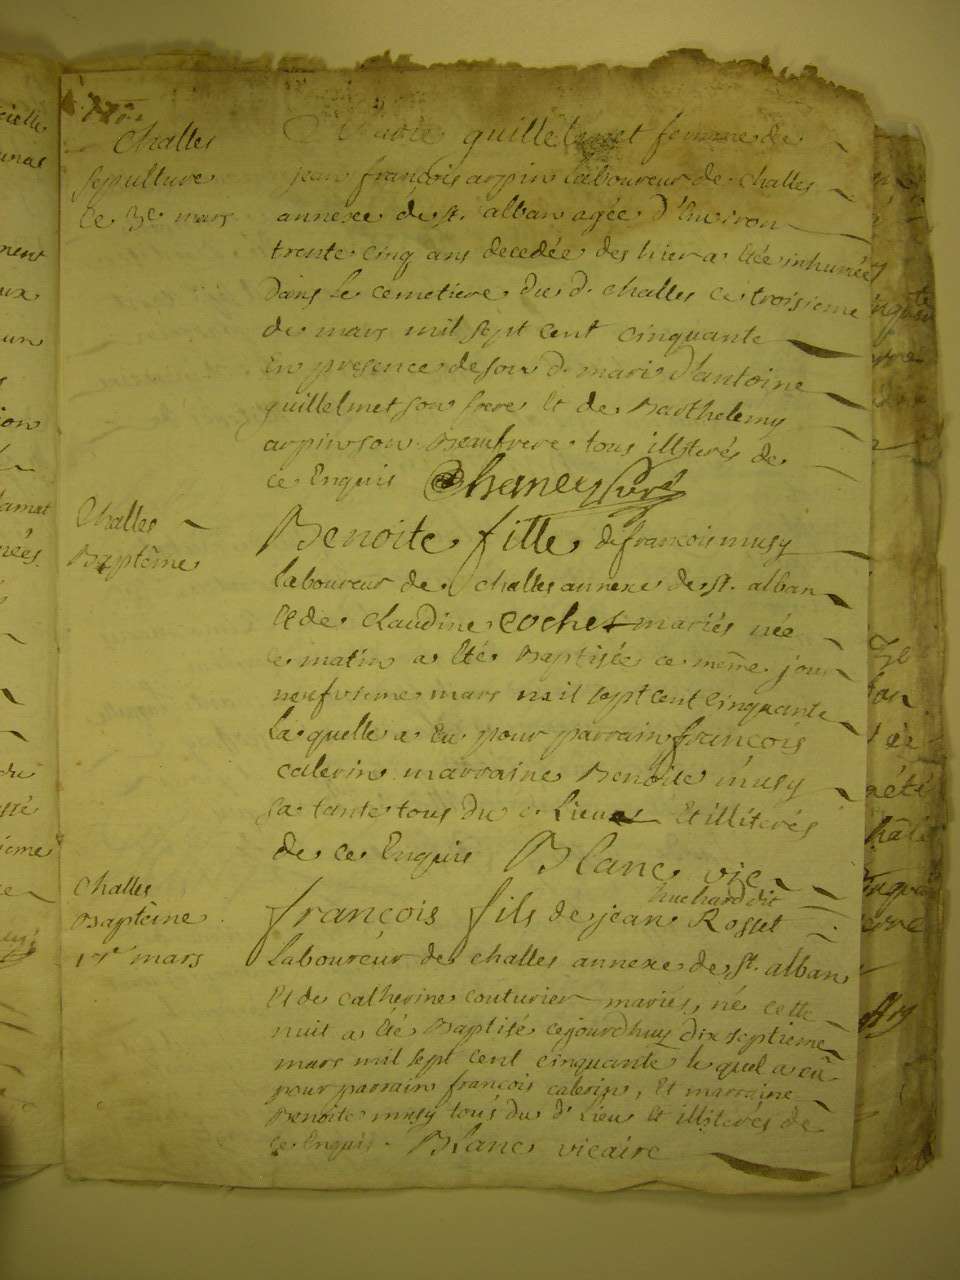 Challes
Sepulture
Ce 3e mars
Marie guillelmet femme de
jean françois arpin laboureur de challes
annexe de st. alban agée d'Environ
trente cinq ans decedée des hier a Etée inhumée
Dans Le cemetiere du d. challes ce troisieme
de mars mil sept cent cinquante
En presence de son d. mari d'antoine
guillelmet son frere Et de Barthelemy
arpin son Beaufrere tous illiterés de
ce Enquis Chaney Curé
Challes
Baptême
Benoite fille de françois musy
laboureur de challes annexe de st. alban
Et de claudine cochet mariés née
ce matin a Eté Baptisée ce même jour
neufvieme mars mil sept cent cinquante
La quelle a Eu pour parrain françois
calerin marraine Benoite musy
sa tante tous du d. Lieu Et illiterés
de ce Enquis Blanc vic
Challes
Baptême
17e mars
huchard dit
françois fils de jean Rosset
Laboureur de challes annexe de st. alban
Et de catherine couturier mariés, né cette
nuit a Eté Baptisé cejourdhuy dix septieme
mars mil sept cent cinquante le quel a eû
pour parrain françois calerin, Et marraine
Benoite musy tous du d. Lieu Et illiterés de
ce Enquis. Blanc vicaire